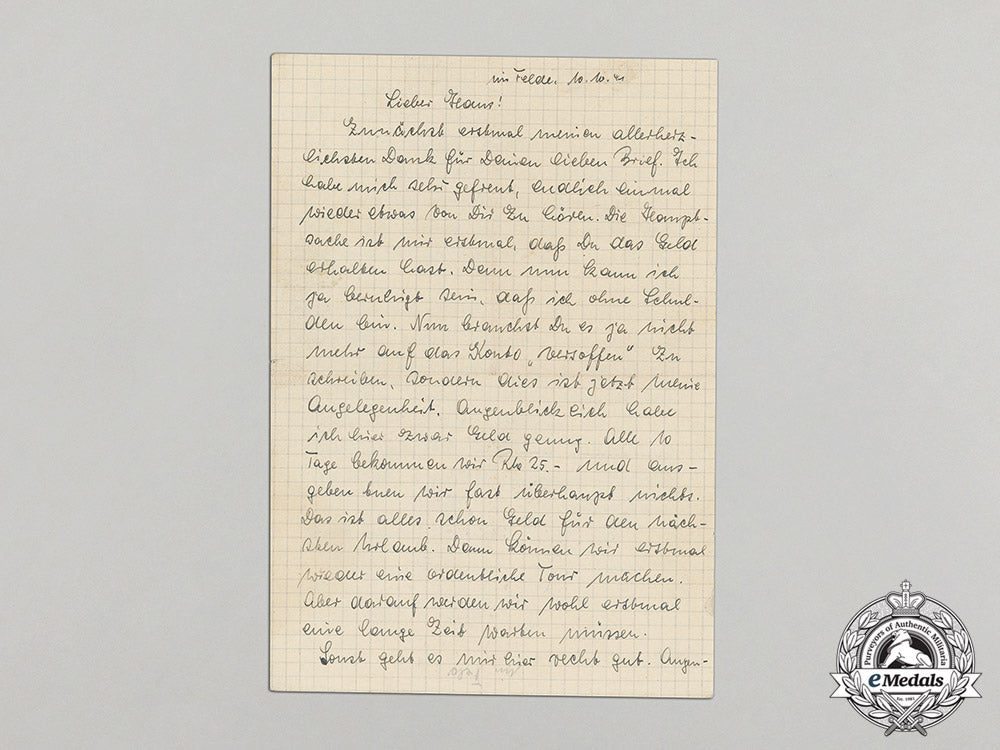 im Felde, 10.10.41
Lieber Hans!
Zunächst erstmal meinen allerherz-
lichsten Dank für Deinen lieben Brief. Ich
habe mich sehr gefreut, endlich einmal
wieder etwas von Dir zu hören. Die Haupt-
sache ist mir erstmal, daß Du das Geld
erhalten hast. Denn nun kann ich
ja beruhigt sein, daß ich ohne Schul-
den bin. Nun brauchst Du es ja nicht
mehr auf das Konto „versoffen" zu
schreiben, sondern dies ist jetzt meine
Angelegenheit. Augenblicklich habe
ich hier zwar Geld genug. Alle 10
Tage bekommen wir RM 25.- und aus-
geben tuen wir fast überhaupt nichts.
Das ist alles schon Geld für den näch-
sten Urlaub. Dann können wir erstmal
wieder eine ordentliche Tour machen.
Aber darauf werden wir wohl erstmal
eine lange Zeit warten müssen.
Sonst geht es mir hier recht gut. Augen-
Purveyors of Authentic Militaria
eMedals
Est. 1985